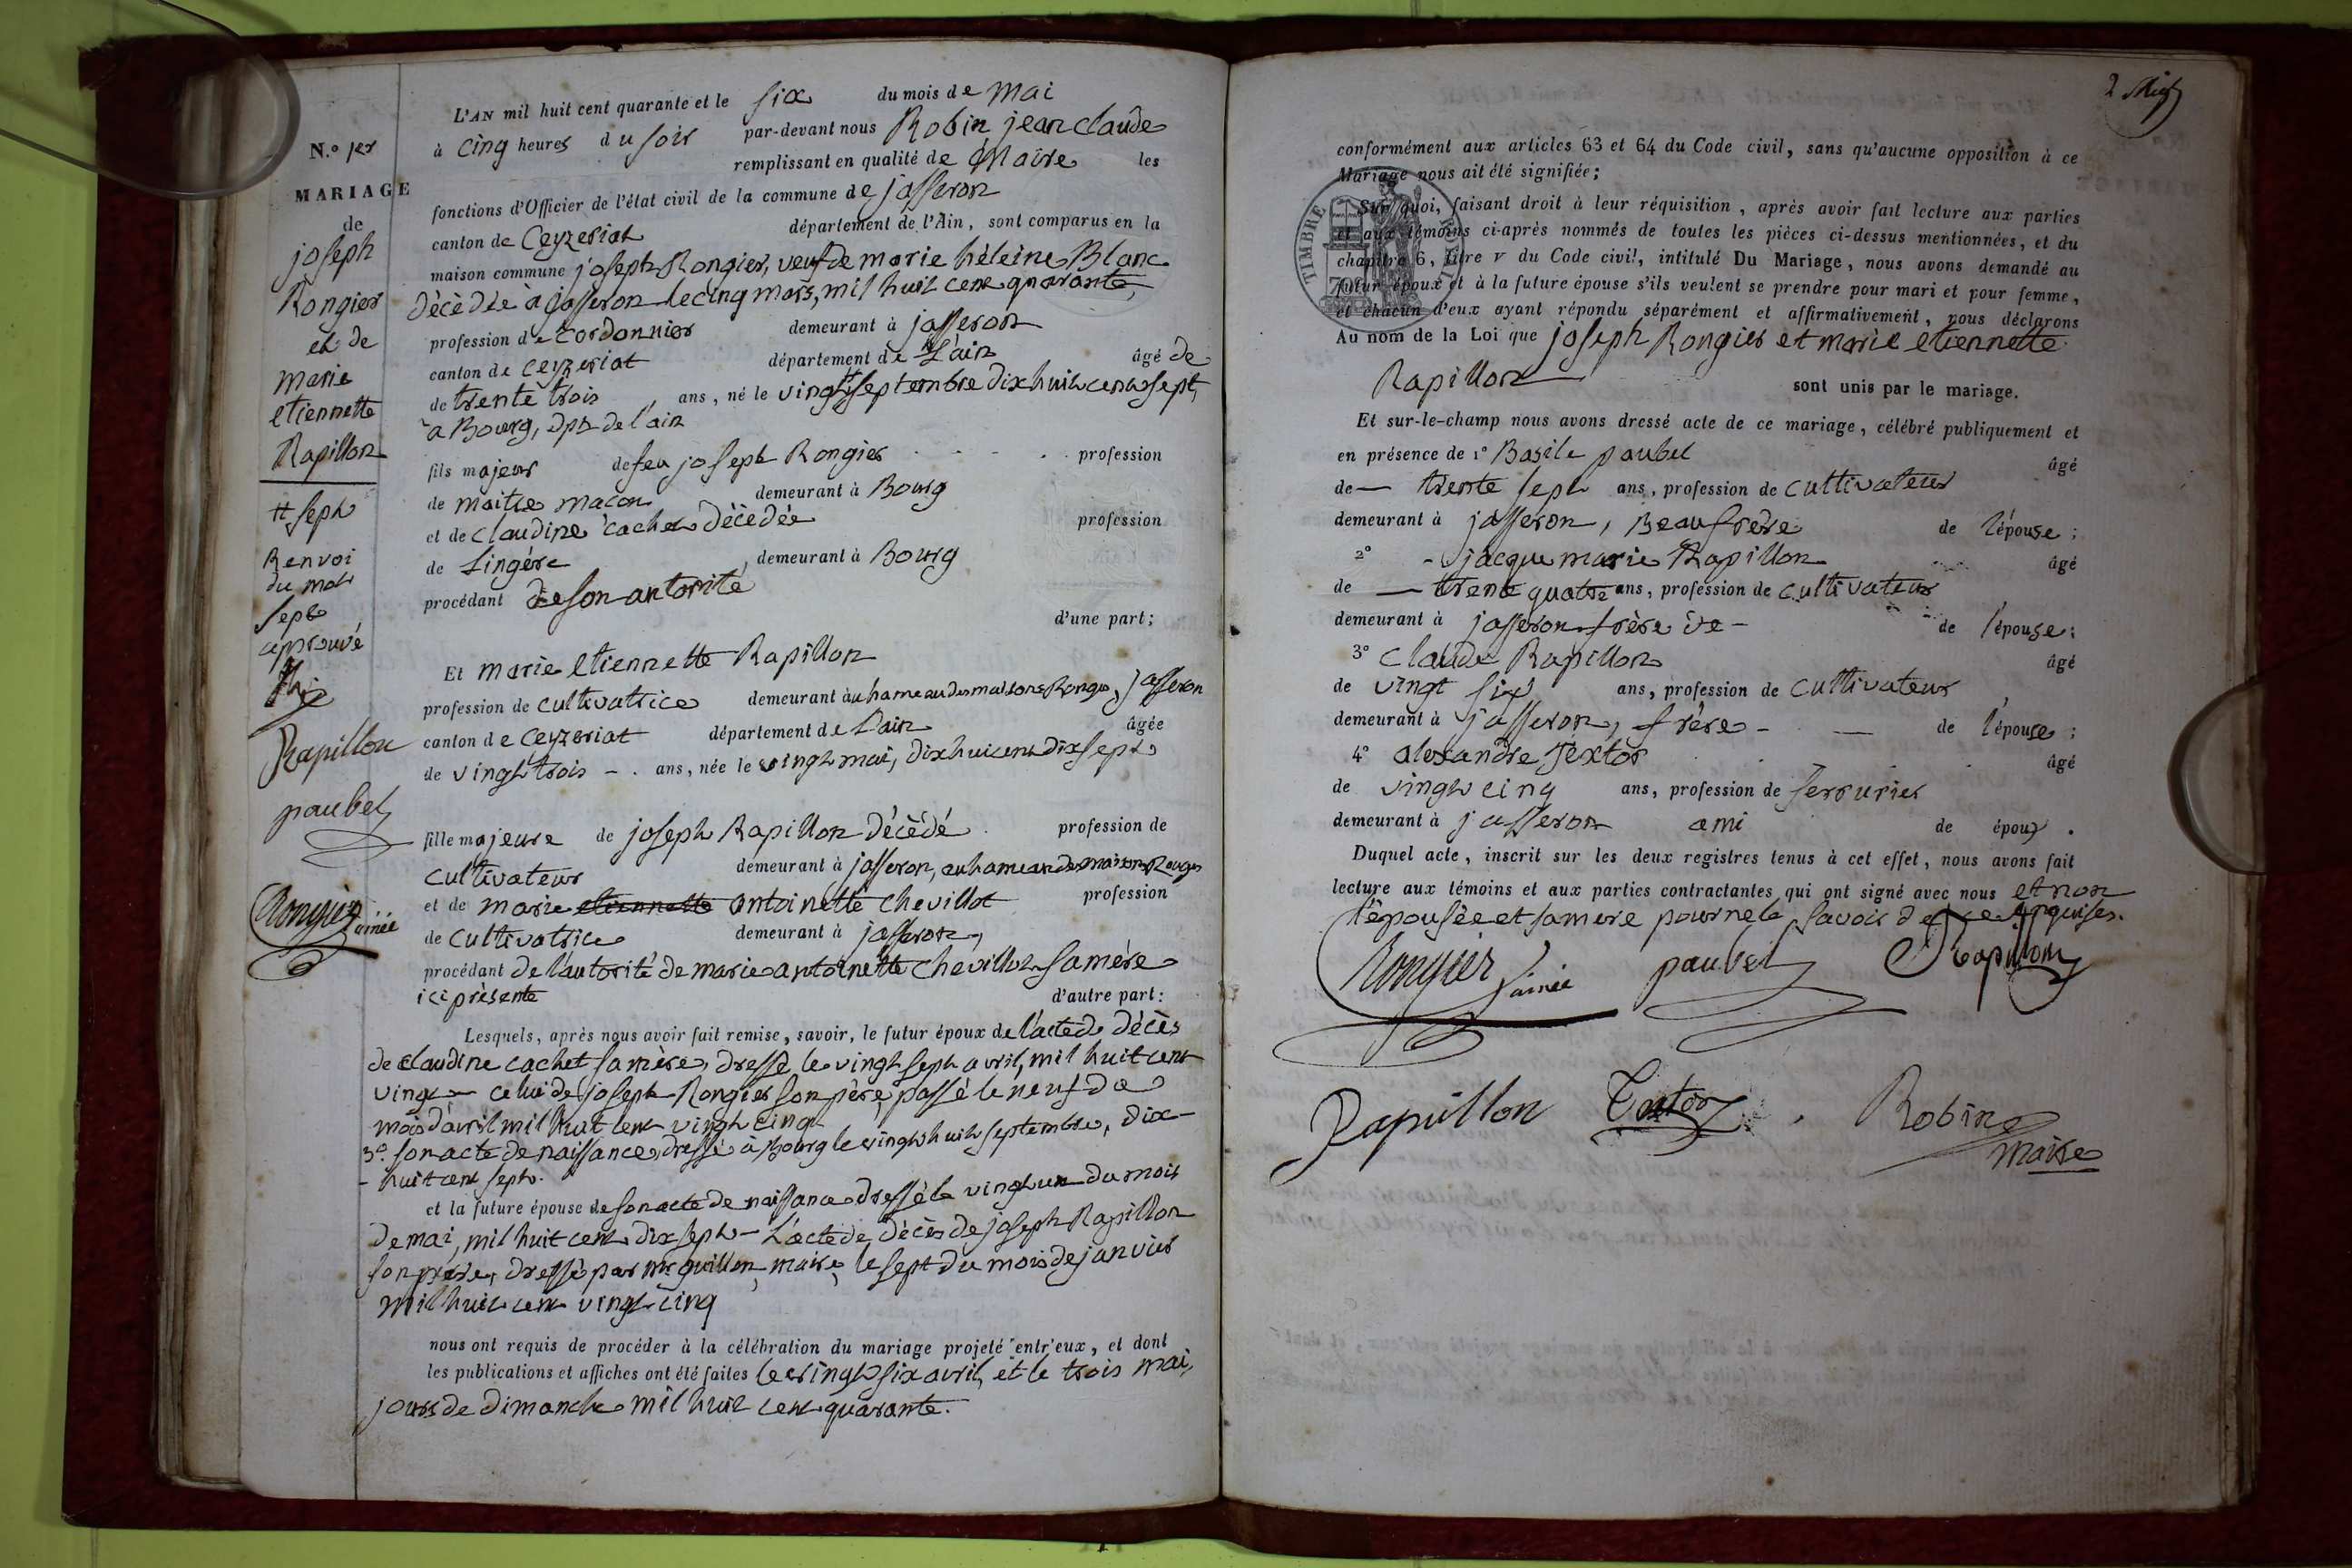 N.º 1er
MARIAGE
de
joseph
Rongier
et de
marie
etiennette
Rapillon
# sept
Renvoi
du mot
sept
aprouvé
Rapillon
paubel
Rongier ainée
L'AN mil huit cent quarante et le six du mois de mai
à cinq heures du soir par-devant nous Robin jean claude
remplissant en qualité de Maire les
fonctions d'Officier de l'état civil de la commune de jasseron
canton de Ceyzeriat département de l'Ain, sont comparus en la
maison commune joseph Rongier, veuf de marie héleine Blanc
décèdée à jasseron le cinq mars, mil huit cent quarante,
profession de cordonnier demeurant à jasseron
canton de ceyzeriat département de L'ain âgé de
de trente trois ans, né le vingt # septembre dix huit cent sept,
a Bourg, dpt de l'ain
fils majeur de feu joseph Rongier profession
de maitre macon demeurant à Bourg
et de claudine cachet décèdée profession
de Lingère, demeurant à Bourg
procédant de son antorité
d'une part;
Et marie etiennette Rapillon
profession de cultivatrice demeurant au hameau des maisons Rouges, jasseron
canton de Ceyzeriat département de L'ain âgée
de vingt trois - . ans, née le vingt mai, dix huit cent dix sept
fille majeure de joseph Rapillon décèdé profession de
cultivateur demeurant à jasseron, au hameau des maisons Rouges
et de marie etiennette antoinette chevillot profession
de cultivatrice demeurant à jasseron,
procédant de l'autorité de marie antoinette chevillot sa mère
ici présente d'autre part:
Lesquels, après nous avoir fait remise, savoir, le futur époux de l'acte de décès
de claudine cachet sa mère, dressé le vingt sept avril, mil huit cent
vingt - celui de joseph Rongier son père, passé le neuf de
mois d'avril mil huit cent vingt cinq
3º. son acte de naissance, dressé à Bourg le vingt huit septembre, dix-
- huit cent sept.
et la future épouse de son acte de naissance dressé le vingt un du mois
de mai, mil huit cent dix sept - L'acte de décès de joseph Rapillon
son père, dressé par mr guillon, maire, le sept du mois de janvier
mil huit cent vingt cinq
nous ont requis de procéder à la célébration du mariage projeté entr'eux, et dont
les publications et affiches ont été faites le vingt six avril, et le trois mai,
jours de dimanche mil huit cent quarante.
2
conformément aux articles 63 et 64 du Code civil, sans qu'aucune opposition à ce
Mariage nous ait été signifiée;
Sur quoi, faisant droit à leur réquisition, après avoir fait lecture aux parties
et aux témoins ci-après nommés de toutes les pièces ci-dessus mentionnées, et du
chapitre 6, titre V du Code civil, intitulé Du Mariage, nous avons demandé au
futur époux et à la future épouse s'ils veulent se prendre pour mari et pour femme,
et chacun d'eux ayant répondu séparément et affirmativement, nous déclarons
Au nom de la Loi que joseph Rongier et marie etiennette
Rapillon sont unis par le mariage.
TIMBRE ROYAL
70
Et sur-le-champ nous avons dressé acte de ce mariage, célébré publiquement et
en présence de 1º Basile paubel âgé
de — trente sept ans, profession de cultivateur
demeurant à jasseron, Beaufrère de l'épouse;
2º - jacque marie Rapillon âgé
de — trente quatre ans, profession de cultivateur
demeurant à jasseron frère de - de l'épouse;
3º claude Rapillon âgé
de vingt six ans, profession de cultivateur
demeurant à jasseron, frère - — de l'épouse;
4º alexandre Textor âgé
de vingt cinq ans, profession de serrurier
demeurant à jasseron ami de époux.
Duquel acte, inscrit sur les deux registres tenus à cet effet, nous avons fait
lecture aux témoins et aux parties contractantes qui ont signé avec nous et non
l'épousée et sa mere pour ne le savoir de ce enquises.
Rongier ainée paubel Rapillon
Rapillon Textor Robin
maire